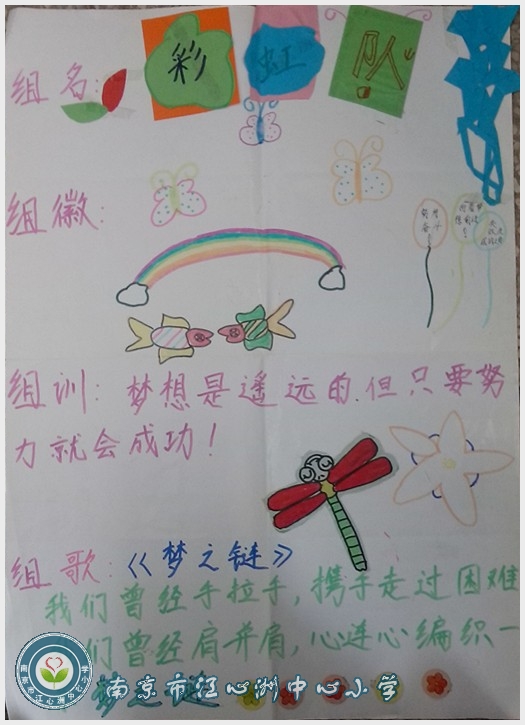 组名：彩虹队
组徽：
努力
奋斗
组训：梦想是遥远的．但只要努
力就会成功！
组歌：《梦之链》
我们曾经手拉手，携手走过困难
们曾经肩并肩，心连心编织一
梦之链
南京市江心洲中心小学
南京市江心洲中心小学